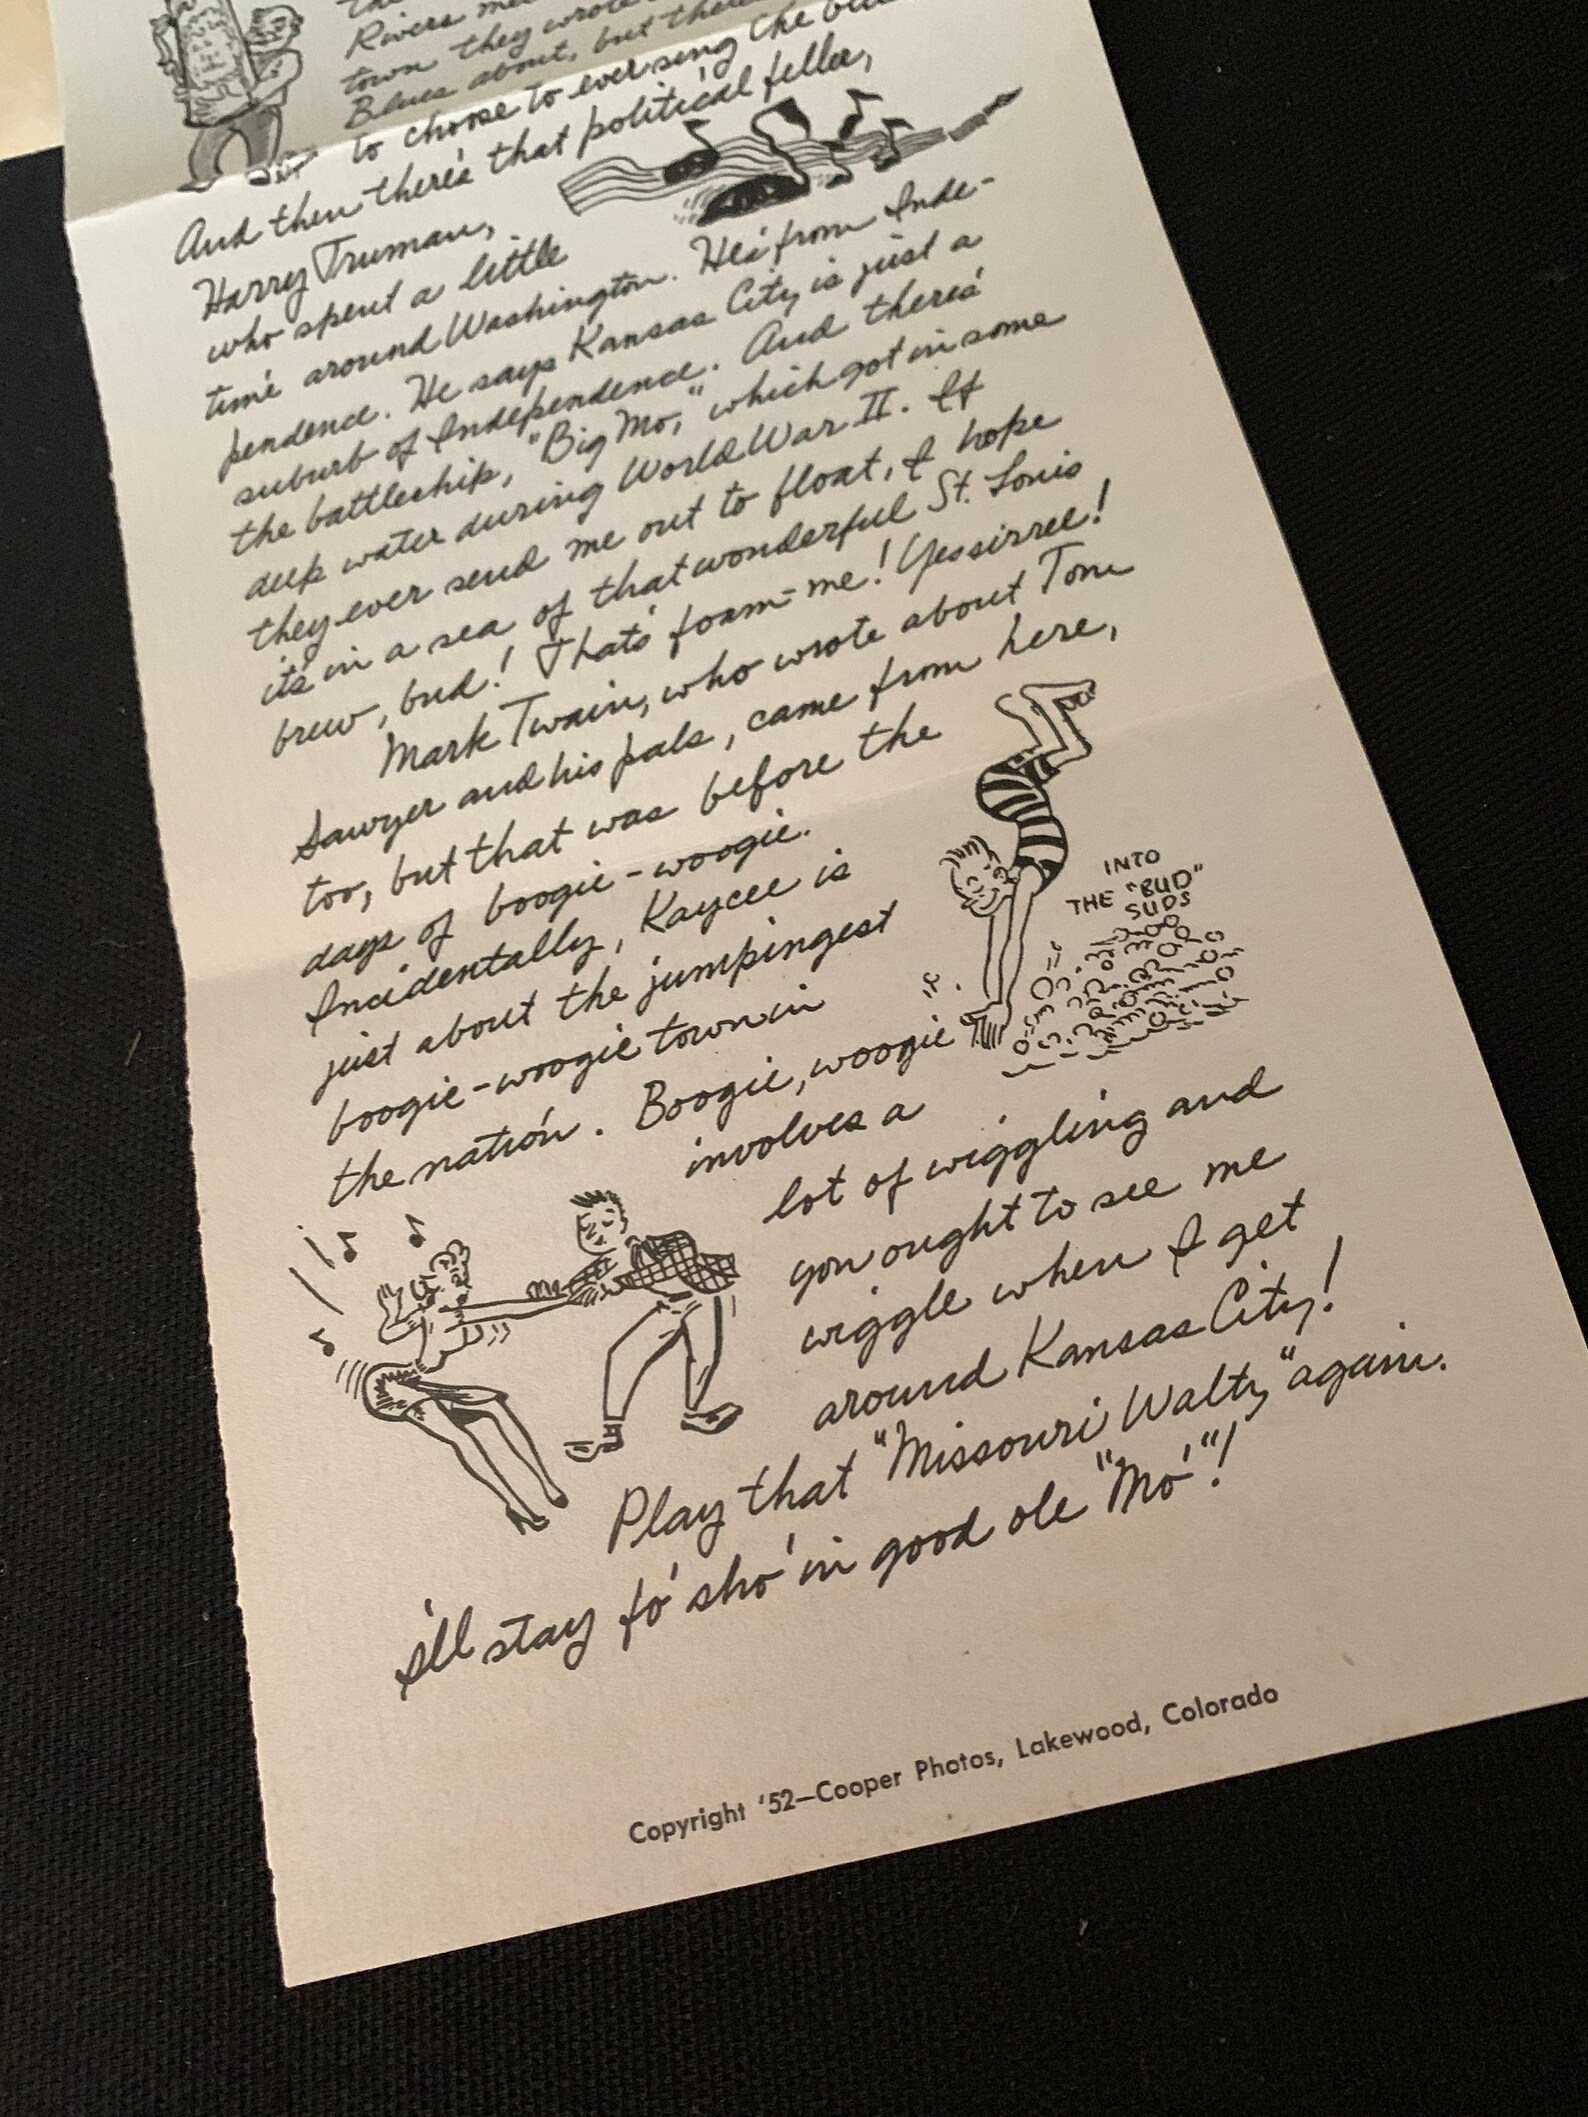 Rivers
town they wrote
Blues about, but there
to choose to ever sing the blu
And then there's that political feller,
Harry Truman,
who spent a little
time around Washington. He's from Inde-
pendence. He says Kansas City is just a
suburb of Independence. And there's
the battleship, "Big Mo," which got in some
deep water during World War II. If
they ever send me out to float, I hope
it's in a sea of that wonderful St. Louis
brew, bud! That's foam-me! Yessirree!
Mark Twain, who wrote about Tom
Sawyer and his pals, came from here,
too, but that was before the
days of boogie-woogie.
Incidentally, Kaycee is
just about the jumpingest
boogie-woogie town in
the nation. Boogie, woogie
involves a
lot of wiggling and
you ought to see me
wiggle when I get
around Kansas City!
Play that "Missouri Waltz" again.
I'll stay fo' sho' in good ole "Mo"!
INTO
THE "BUD"
SUDS
Copyright '52—Cooper Photos, Lakewood, Colorado